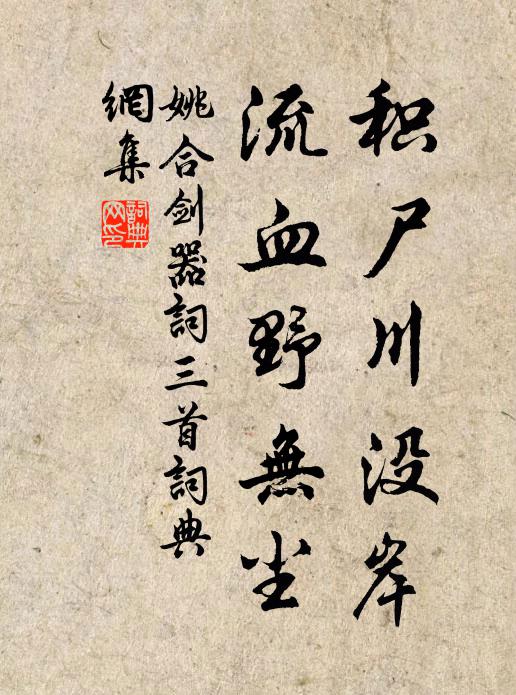 积尸川没岸
流血野無尘
姚合剑器詞三首詞典
網集
詞典网印